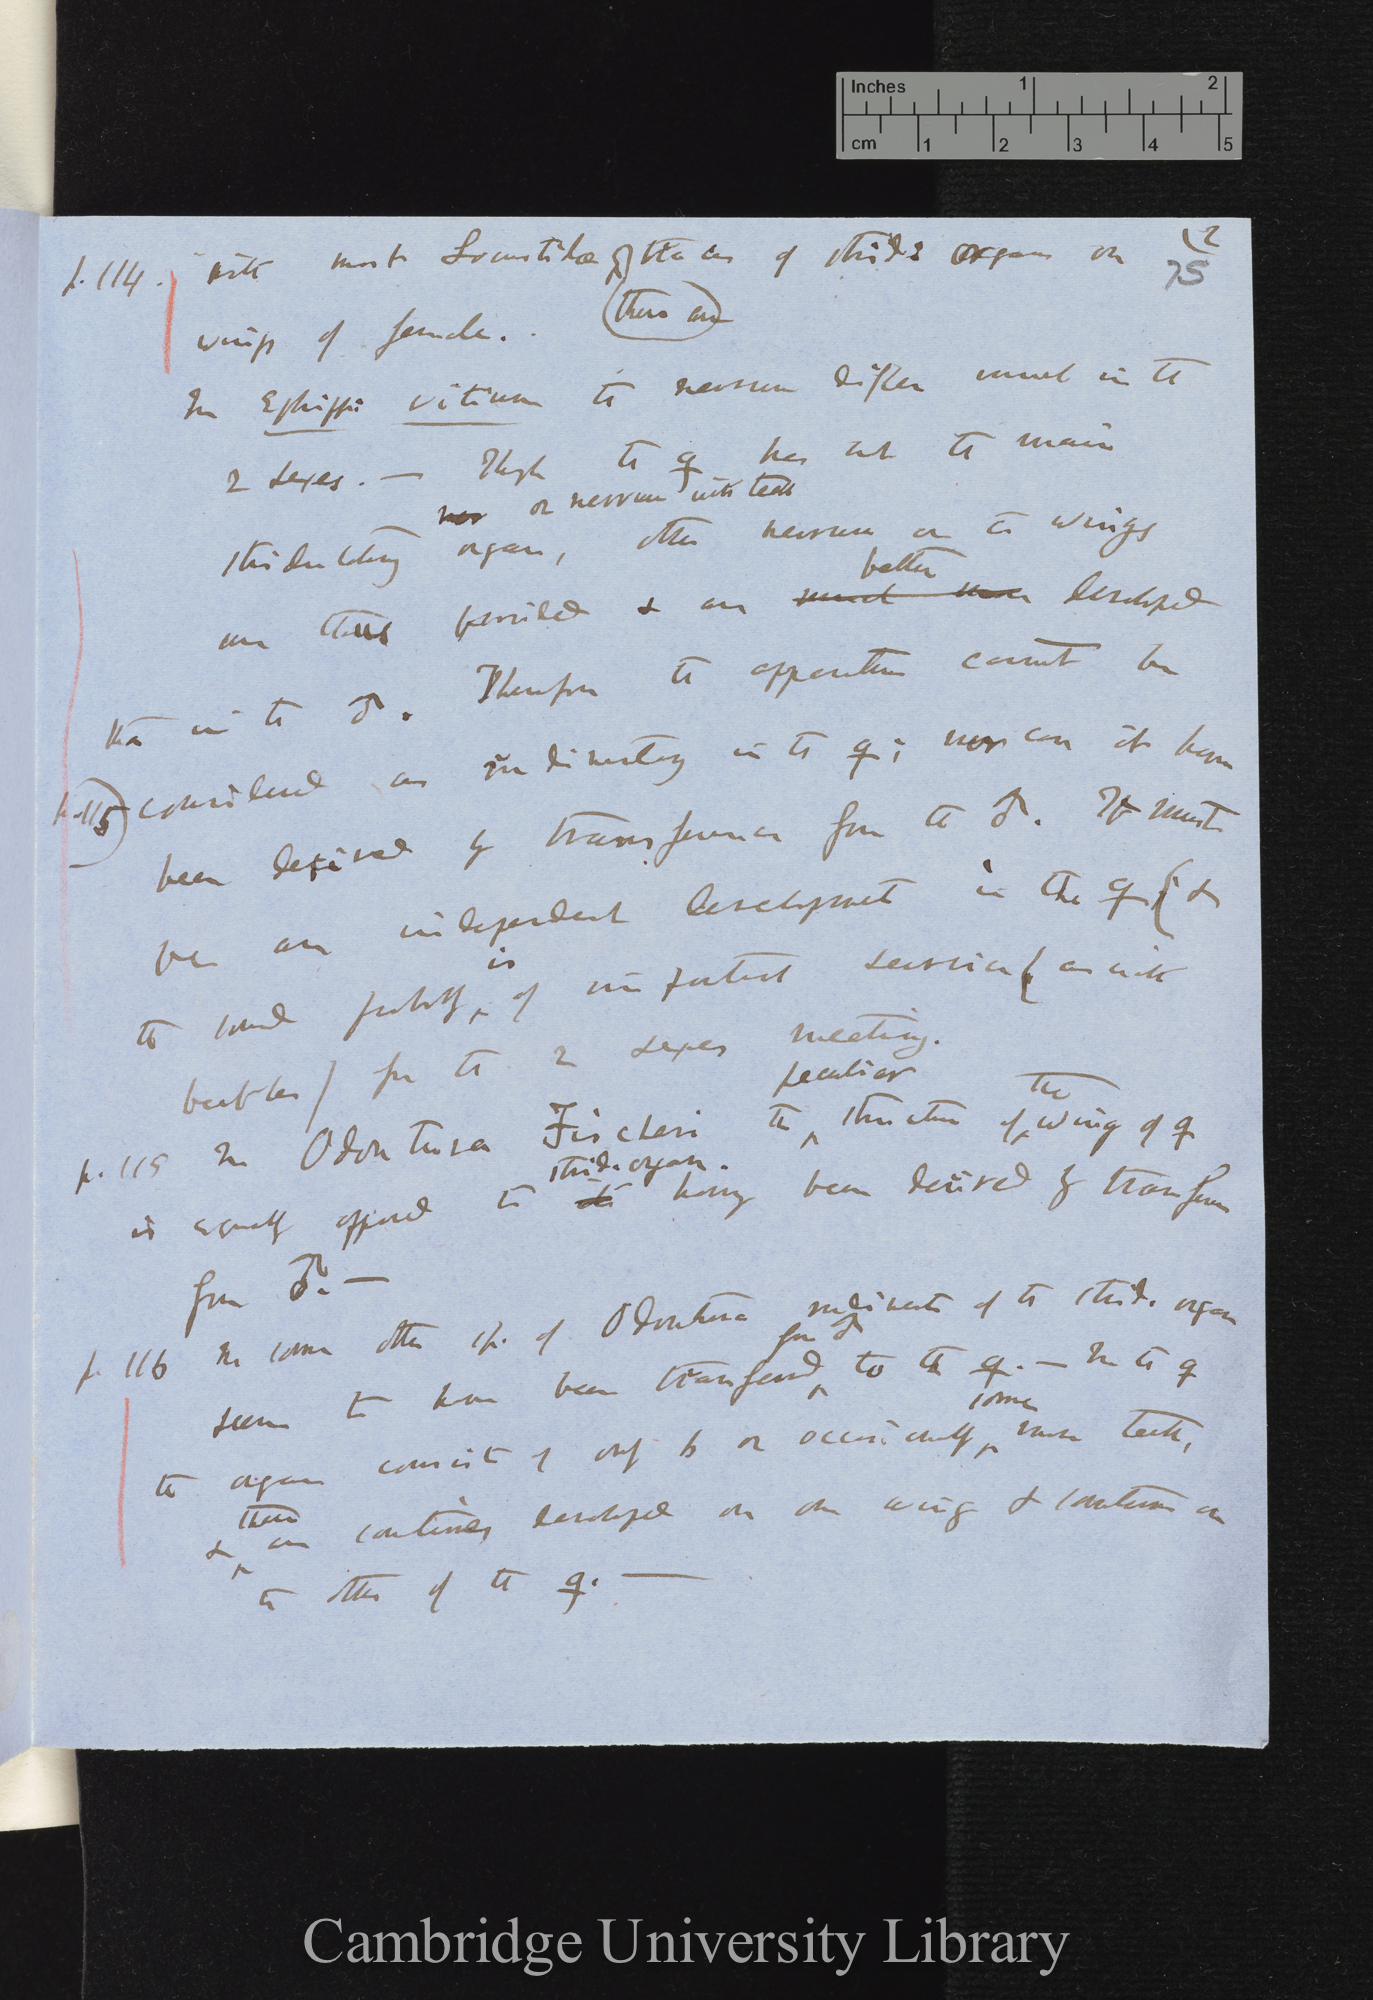 Inches 1 2
cm 1 2 3 4 5
(2
75
p. 114. with most Locustidæ traces of strid. organs on
(there are)
wings of female.
In Ephippi vitium the nervures differ much in the
2 sexes. — Though the ♀ has not the main
ner or nervure with teeth
stridulating organ, other nervures on the wings
better
are thus provided & are much more developed
than in the ♂. Therefore the apparatus cannot be
p. 115) considered as rudimentary in the ♀; nor can it have
been derived by transference from the ♂. It must
be an independent development in the ♀ (&
is
the sound probably of important service (as with
beetles) for the 2 sexes meeting.
peculiar the
p. 115 In Odontura Fischeri the structure of wing of ♀
strid. organ.
is equally opposed to its having been derived by transference
from ♂. —
p. 116 In some other sp. of Odontura rudiments of the strid. organ
from ♂
seem to have been transferred to the ♀. — In the ♀
some
the organ consist of only 6 or occasionally more teeth,
these
& are sometimes developed on one wing & sometimes on
the other of the ♀. —
Cambridge University Library